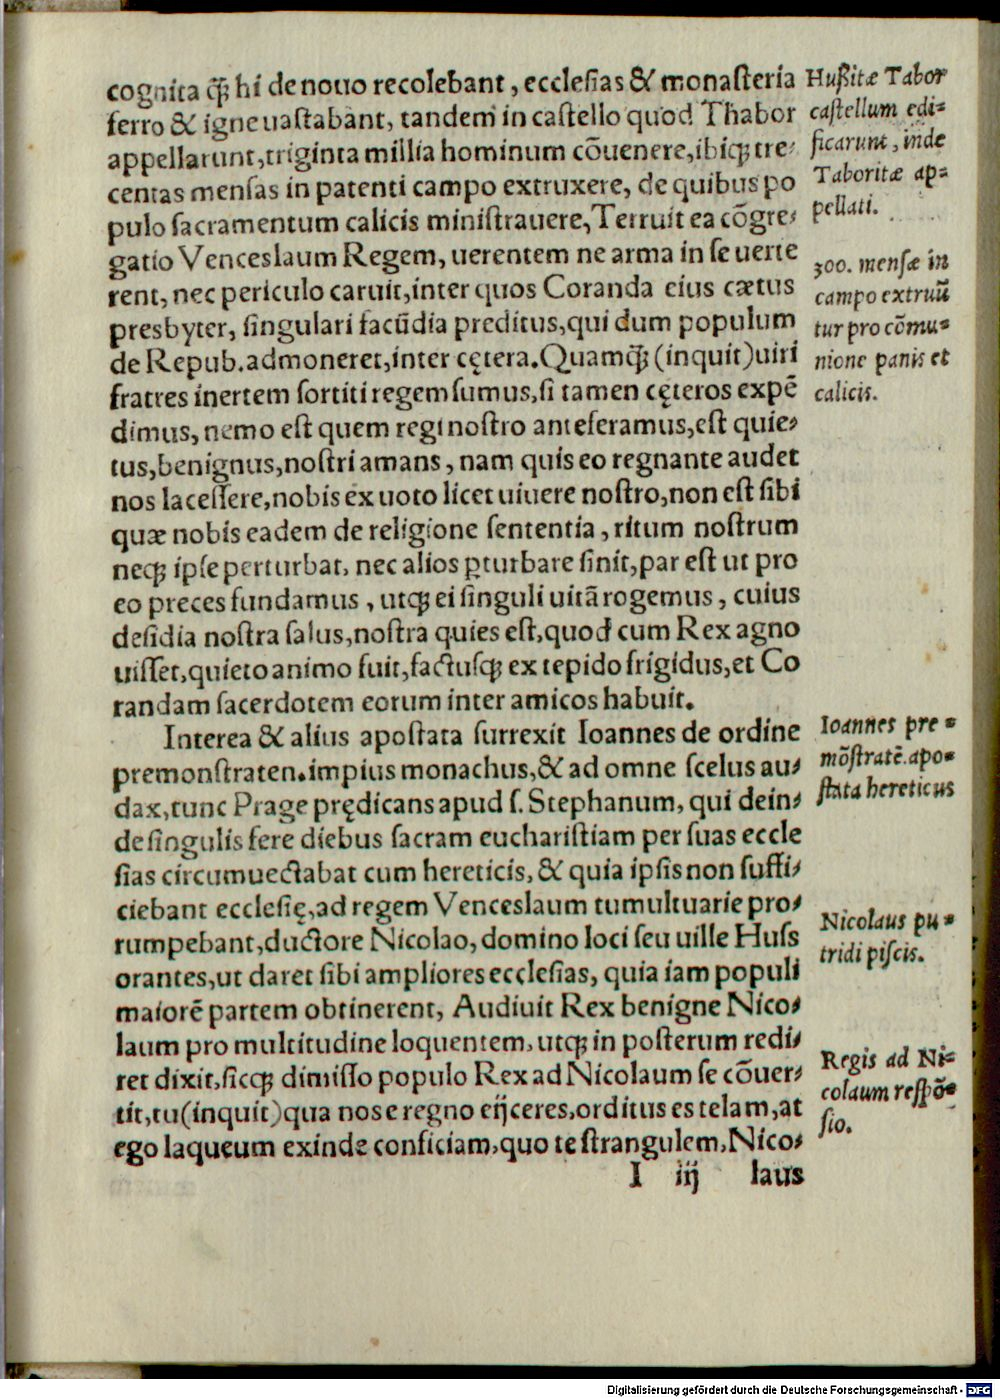 cognita q̄ꝫ hi de nouo recolebant, ecclesias & monasteria
ferro & igne uastabant, tandem in castello quod Thabor
appellarunt, triginta millia hominum cõuenere, ibiqꝫ tre-
centas mensas in patenti campo extruxere, de quibus po
pulo sacramentum calicis ministrauere, Terruit ea cõgre-
gatio Venceslaum Regem, uerentem ne arma in se uerte
rent, nec periculo caruit, inter quos Coranda eius cætus
presbyter, singulari facũdia preditus, qui dum populum
de Repub. admoneret, inter cętera. Quamq̄ꝫ (inquit) uiri
fratres inertem sortiti regem sumus, si tamen cęteros expẽ
dimus, nemo est quem regi nostro anteferamus, est quie-
tus, benignus, nostri amans, nam quis eo regnante audet
nos lacessere, nobis ex uoto licet uiuere nostro, non est sibi
quæ nobis eadem de religione sententia, ritum nostrum
neqꝫ ipse perturbat, nec alios ꝑturbare sinit, par est ut pro
eo preces fundamus, utqꝫ ei singuli uitã rogemus, cuius
desidia nostra salus, nostra quies est, quod cum Rex agno
uisset, quieto animo fuit, factusqꝫ ex tepido frigidus, et Co
randam sacerdotem eorum inter amicos habuit.
Interea & alius apostata surrexit Ioannes de ordine
premonstraten. impius monachus, & ad omne scelus au-
dax, tunc Prage prędicans apud s. Stephanum, qui dein-
de singulis fere diebus sacram eucharistiam per suas eccle
sias circumuectabat cum hereticis, & quia ipsis non suffi-
ciebant ecclesię, ad regem Venceslaum tumultuarie pro-
rumpebant, ductore Nicolao, domino loci seu uille Huss
orantes, ut daret sibi ampliores ecclesias, quia iam populi
maiorẽ partem obtinerent, Audiuit Rex benigne Nico-
laum pro multitudine loquentem, utqꝫ in posterum redi-
ret dixit, sicqꝫ dimisso populo Rex ad Nicolaum se cõuer-
tit, tu (inquit) qua nos e regno eijceres, orditus es telam, at
ego laqueum exinde conficiam, quo te strangulem, Nico-
I iij laus
Hußitæ Tabor
castellum edi-
ficarunt, inde
Taboritæ ap-
pellati.
300. mensæ in
campo extruũ
tur pro cõmu-
nione panis et
calicis.
Ioannes pre-
mõstratẽ. apo-
stata hereticus
Nicolaus pu-
tridi piscis.
Regis ad Ni-
colaum respõ-
sio.
Digitalisierung gefördert durch die Deutsche Forschungsgemeinschaft - DFG